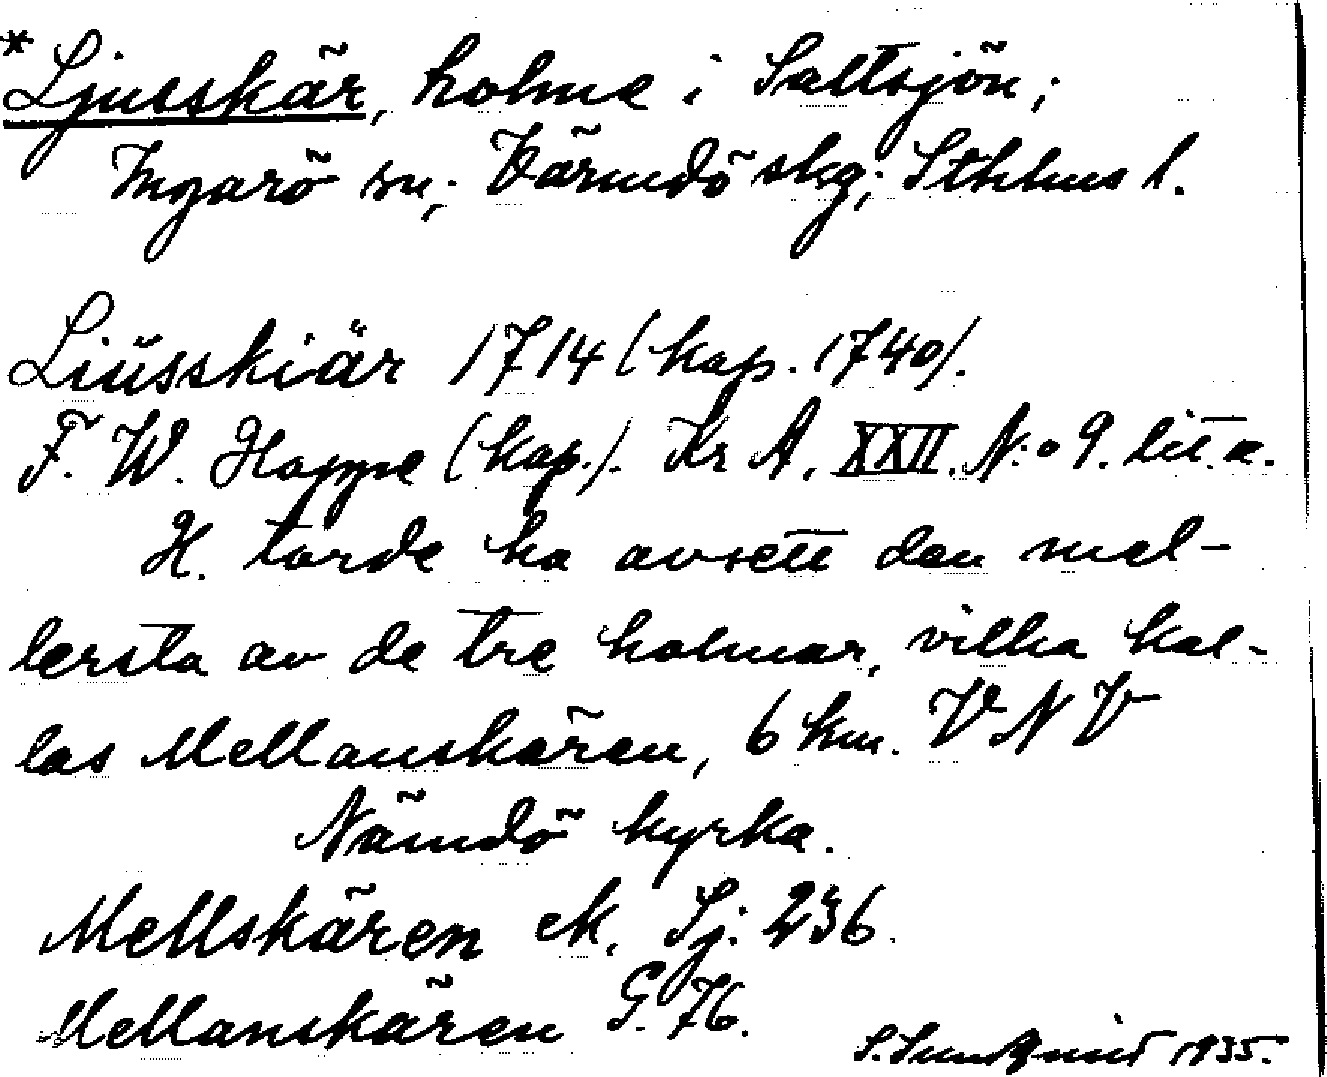 *Ljusskär, holme i Saltsjön;
Ingarö sn; Värmdö skg; Sthlms l.
Liüsskiär 1714 (kop. 1740).
F. W. Hoppe (kop.). Kr A. XXII. N:o 9. lit. a.
H. torde ha avsett den mel-
lersta av de tre holmar, vilka kal-
las Mellanskären, 6 km. VNV
Nämdö kyrka.
Mellskären ek. Sj. 236.
Mellanskären G. 76.
S. Sundqvist 1935.